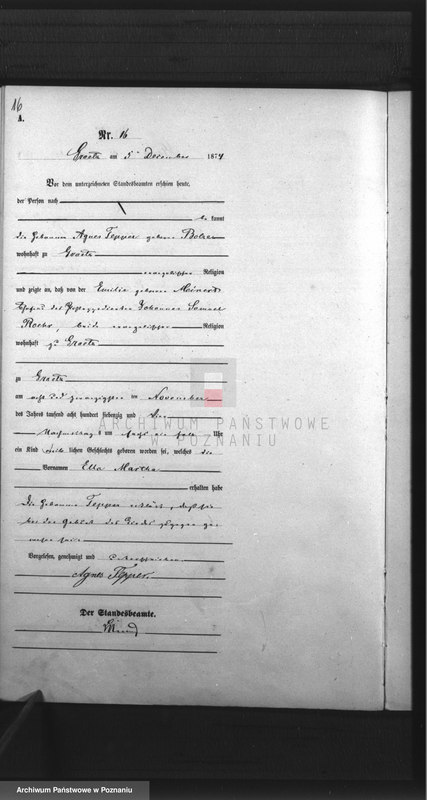 16
A.
Nr. 16
Graetz am 5ten December 1874
Vor dem unterzeichneten Standesbeamten erschien heute,
der Person nach
be kannt
die Hebamme Agnes Tepper geborne
wohnhaft zu Graetz
evangelischer Religion
und zeigte an, daß von der Emilie geborne Meinert
Ehefrau des Johannes Samuel
beide evangelischer Religion
wohnhaft zu Graetz
zu Graetz
am acht und zwanzigsten ten November
des Jahres tausend acht hundert siebenzig und vier
Nachmittags um Uhr
ein Kind weib lichen Geschlechts geboren worden sei, welches die
Vornamen Ella Martha
erhalten habe
Die Hebamme Tepper erklärt, daß sie
bei der Geburt des Kindes zugegen ge-
wesen sei
Vorgelesen, genehmigt und unterschrieben
Agnes Tepper.
Der Standesbeamte.
ARCHIWUM PAŃSTWOWE
W POZNANIU
Archiwum Państwowe w Poznaniu